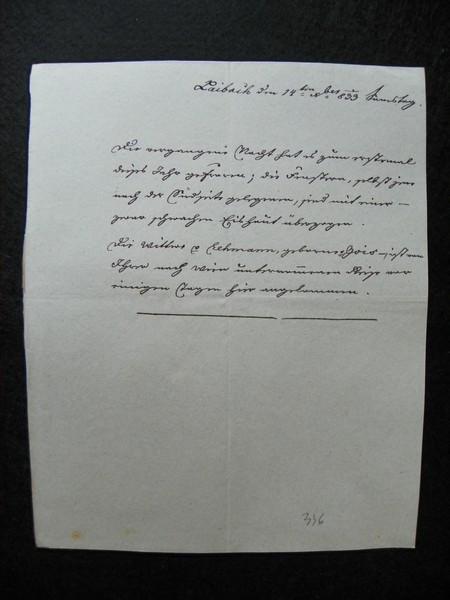 Laibach den 19ten 8ber 833 Samstag.
Die vergangene Nacht hat es zum erstenmal
dieses Jahr gefroren; die Fenstern, selbst jene
nach der Südseite gelegenen, sind mit einer –
zwar schwachen Eishaut überzogen.
Die Wittwe Lehmann, geborne Zois – ist von
Ihrer nach Wien unternommenen Reise vor
einigen Tagen hier angekommen.
396